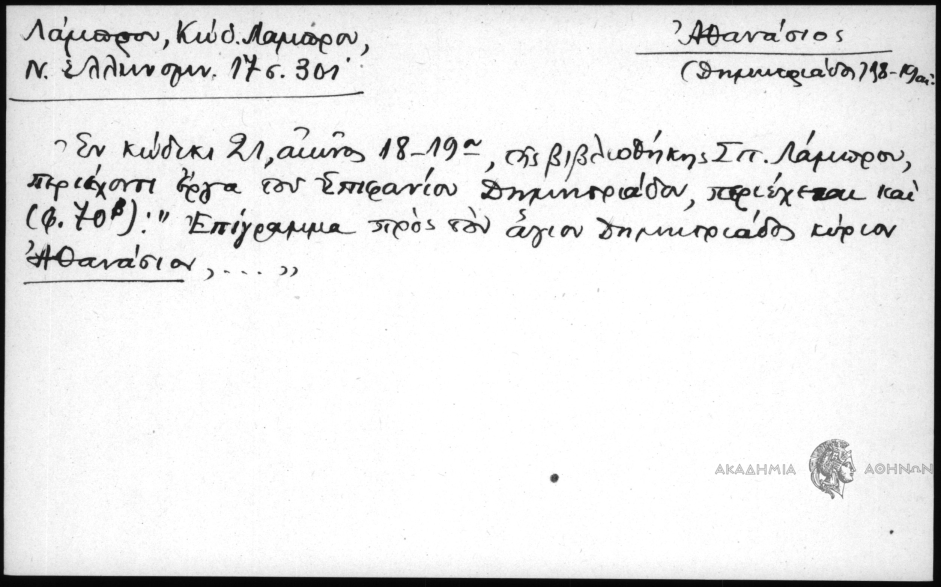 Λάμπρου, Κώδ. Λαμπρου,
Ν. Ἑλληνομν. 17 σ. 301
Ἀθανάσιος
(Δημητριάδος) 18-19 αἰ.
Ἐν κώδικι 21, αἰῶνος 18-19ου, τῆς βιβλιοθήκης Σπ. Λάμπρου,
περιέχοντι ἔργα τοῦ Ἐπιφανίου Δημητριάδου, περιέχεται καὶ
(φ. 70β): " Ἐπίγραμμα πρὸς τὸν ἅγιον Δημητριάδος κύριον
Ἀθανάσιον, .... "
ΑΚΑΔΗΜΙΑ ΑΘΗΝΩΝ